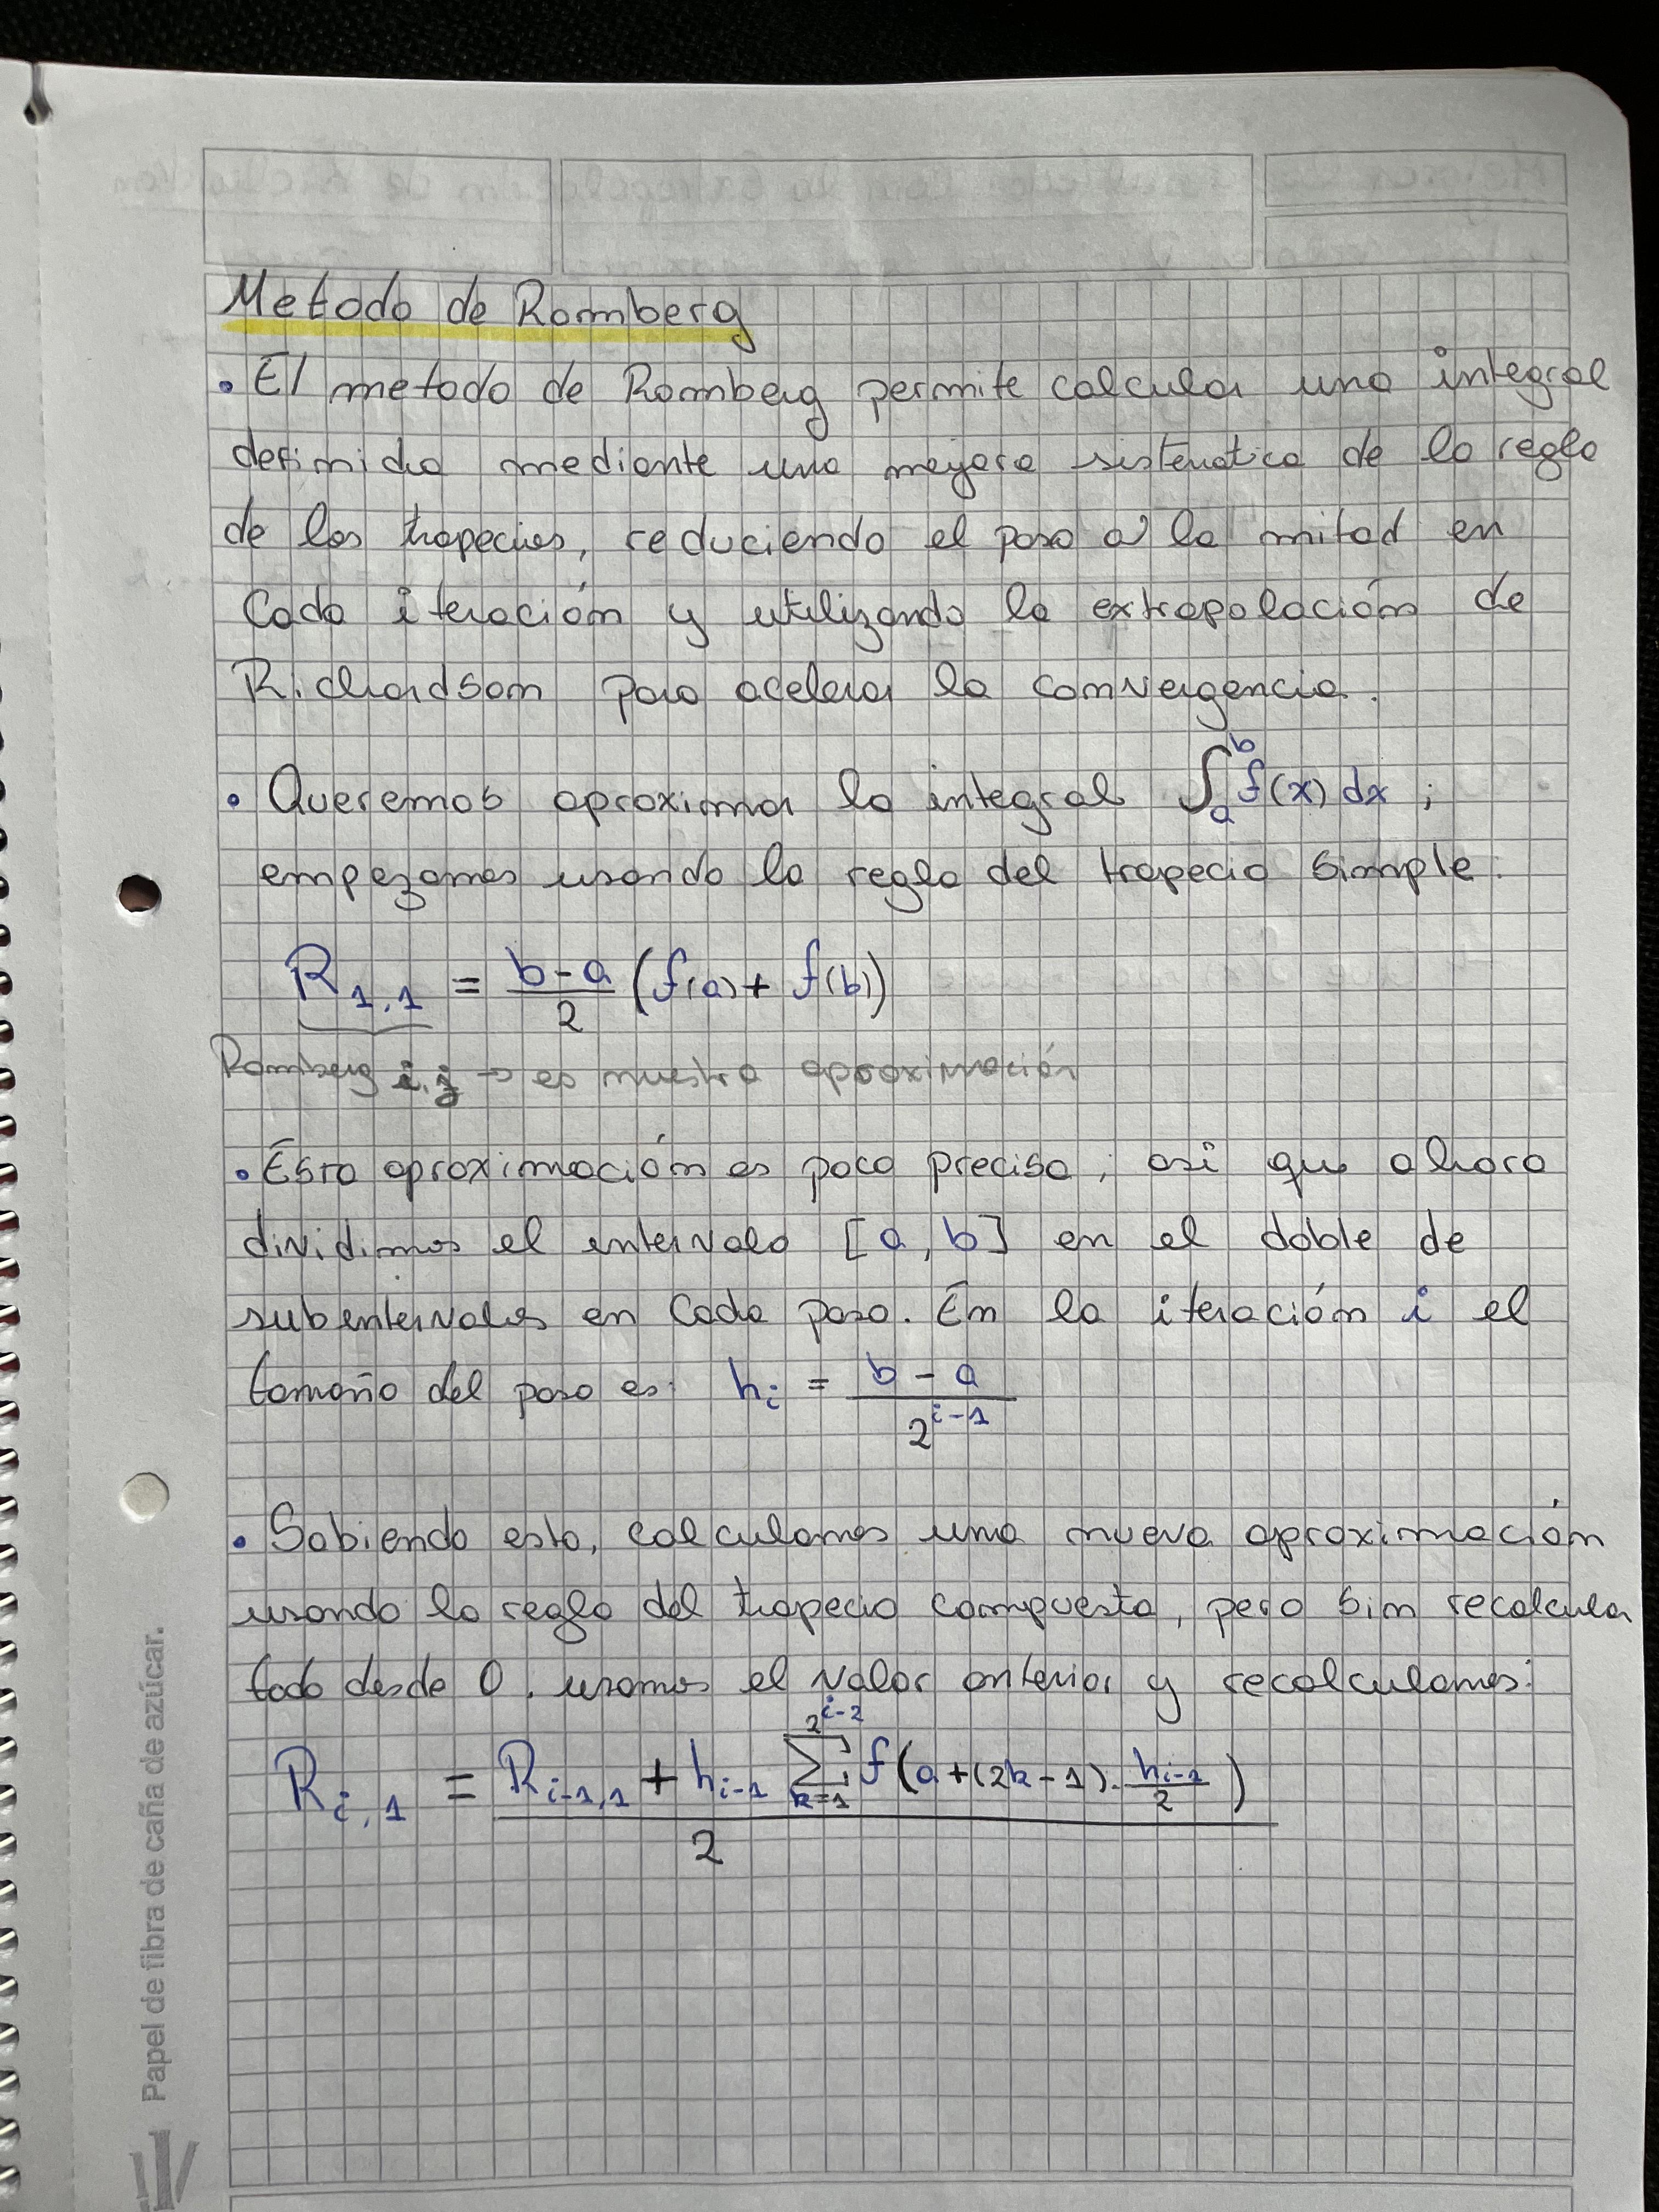 Metodo de Romberg
• El metodo de Romberg permite calcular una integral
definida mediante una mejora sistematica de la regla
de los trapecios, reduciendo el paso a la mitad en
Cada iteración y utilizando la extrapolación de
Richardson para acelerar la convergencia.
• Queremos aproximar la integral ∫_a^b f(x) dx ;
empezamos usando la regla del trapecio simple:
R_{1,1} = \frac{b-a}{2} (f(a) + f(b))
Romberg i,j → es nuestra aproximación
• Esta aproximación es poco precisa, asi que ahora
dividimos el intervalo [a, b] en el doble de
subintervalos en Cada paso. En la iteración i el
tamaño del paso es: h_i = \frac{b-a}{2^{i-1}}
• Sabiendo esto, calculamos una nueva aproximación
usando la regla del trapecio compuesta, pero sin recalcular
todo desde 0, usamos el valor anterior y recalculamos:
R_{i,1} = \frac{R_{i-1,1} + h_{i-1} \sum_{k=1}^{2^{i-2}} f(a+(2k-1)·\frac{h_{i-1}}{2})}{2}
Papel de fibra de caña de azúcar.